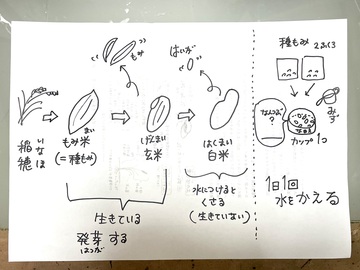 もみ
はいが
稲穂
いなほ
もみ米
まい
(=種もみ)
げんまい
玄米
はくまい
白米
生きている
発芽する
はつが
水につけると
くさる
(生きていない)
種もみ 2ふくろ
みず
なんつぶ
?
カップ1つ
1日1回
水をかえる